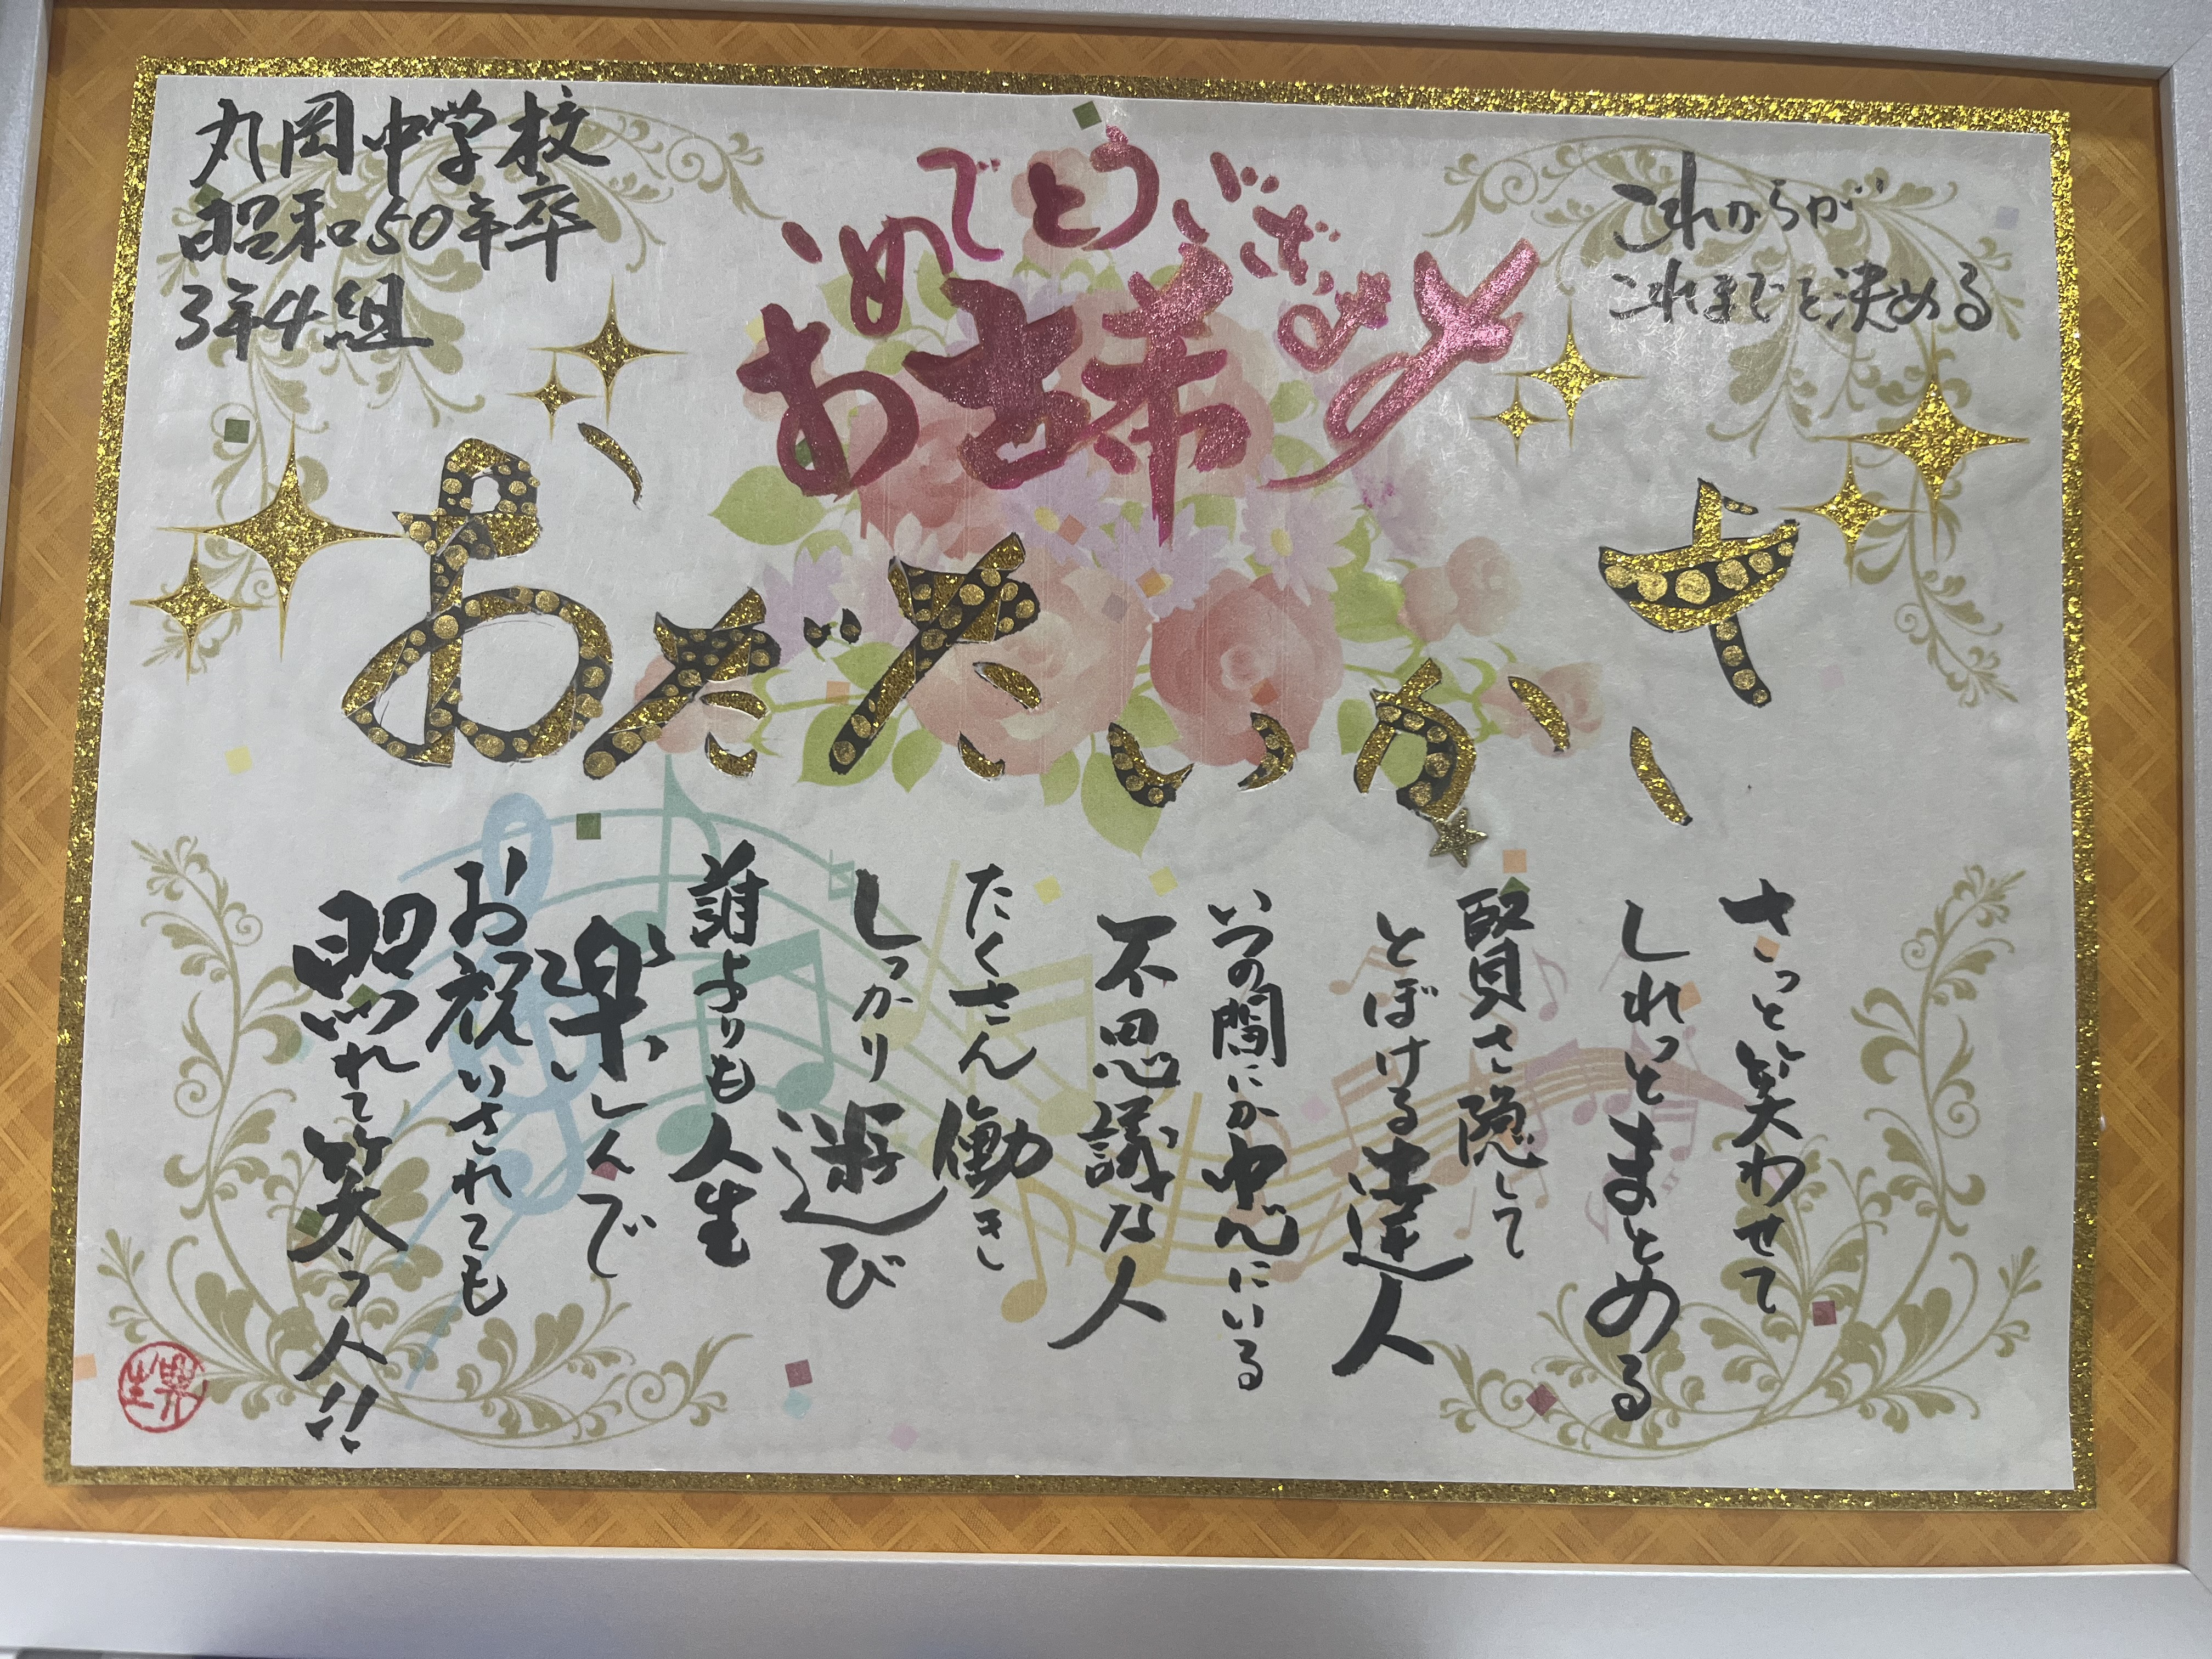 丸岡中学校
昭和50年卒
3年4組
おめでとうございます
古希
これからが
これまでを決める
さかいただお
さっと笑わせて
しれっとまとめる
賢さ隠して
とぼける達人
いつの間にか中心にいる
不思議な人
たくさん働き
しっかり遊び
誰よりも人生
楽しんで
お祝いされても
照れて笑う人!!